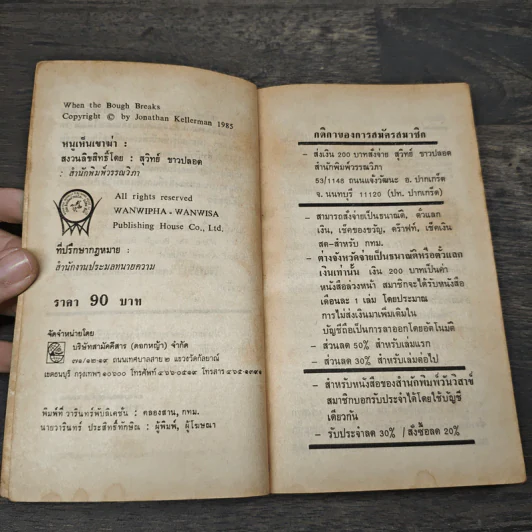 When the Bough Breaks
Copyright © by Jonathan Kellerman 1985
หนูเห็นเขาฆ่า :
สงวนลิขสิทธิ์โดย : สุวิทย์ ขาวปลอด
: สำนักพิมพ์วรรณวิภา
All rights reserved
WANWIPHA - WANWISA
Publishing House Co., Ltd.
ที่ปรึกษากฎหมาย :
สำนักงานประมลทนายความ
ราคา 90 บาท
จัดจำหน่ายโดย
บริษัทสามัคคีสาร (ดอกหญ้า) จำกัด
๗๑/๑๒-๑๙ ถนนเทศบาลสาย ๒ แขวงวัดกัลยาณ์
เขตธนบุรี กรุงเทพฯ ๑๐๖๐๐ โทรศัพท์
พิมพ์ที่ วารินทร์พับลิเคชั่น : คลองสาน, กทม.
นายวารินทร์ ประสิทธิ์ทักษิณ : ผู้พิมพ์, ผู้โฆษณา
กติกาของการสมัครสมาชิก
– ส่งเงิน 200 บาทสั่งจ่าย สุวิทย์ ขาวปลอด
สำนักพิมพ์วรรณวิภา
53/1146 ถนนแจ้งวัฒนะ อ. ปากเกร็ด
จ. นนทบุรี 11120 (ปท. ปากเกร็ด)
– สามารถสั่งจ่ายเป็นธนาณัติ, ตั๋วแลก
เงิน, เช็คของขวัญ, ดร๊าฟท์, เช็คเงิน
สด-สำหรับ กทม.
– ต่างจังหวัดจ่ายเป็นธนาณัติหรือตั๋วแลก
เงินเท่านั้น เงิน 200 บาทเป็นค่า
หนังสือล่วงหน้า สมาชิกจะได้รับหนังสือ
เดือนละ 1 เล่ม โดยประมาณ
การไม่ส่งเงินมาเพิ่มเติมใน
บัญชีถือเป็นการลาออกโดยอัตโนมัติ
– ส่วนลด 50% สำหรับเล่มแรก
– ส่วนลด 30% สำหรับเล่มต่อไป
– สำหรับหนังสือของสำนักพิมพ์วรรณวิสาข์
สมาชิกบอกรับประจำได้โดยใช้บัญชี
เดียวกัน
– รับประจำลด 30% / สั่งซื้อลด 20%